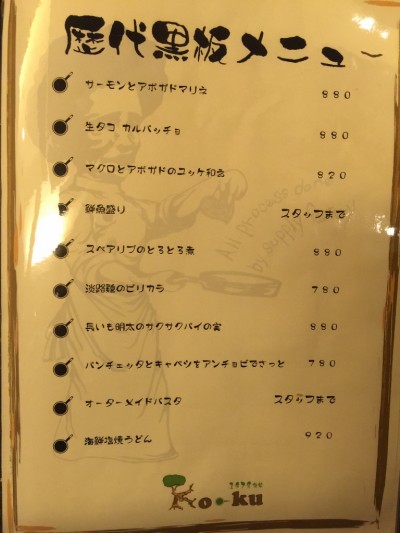 歴代黒板メニュー
サーモンとアボガドマリネ 880
生タコ カルパッチョ 880
マグロとアボガドのユッケ和え 820
鮮魚盛り スタッフまで
スペアリブのとろとろ煮 880
淡路鶏のピリカラ 780
長いも明太のサクサクパイの実 880
パンチェッタとキャベツをアンチョビでさっと 780
オーダーメイドパスタ スタッフまで
海鮮塩焼うどん 920
All process done
by supply
Ko-ku